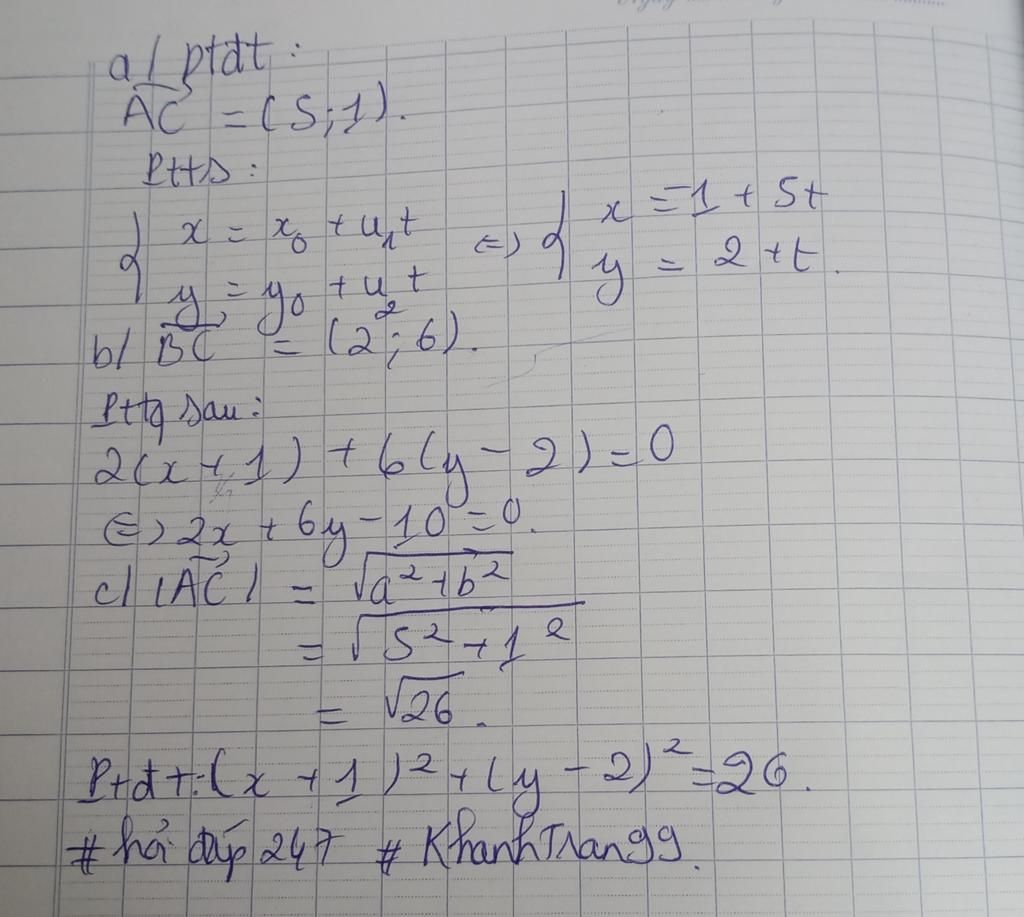 a/ ptđt:
AC→ = (5;1).
Ptts:
{ x = x₀ + u₁t ⇔ { x = 1 + 5t
{ y = y₀ + u₂t { y = 2 + t.
b/ BC→ = (2;6).
Pttq sau:
2(x+1) + 6(y-2) = 0
⇔ 2x + 6y - 10 = 0.
c/ |AC→| = √(a² + b²)
= √(5² + 1²)
= √26.
Ptđt: (x + 1)² + (y - 2)² = 26.
# hỏi đáp 247 # KhanhTran99.